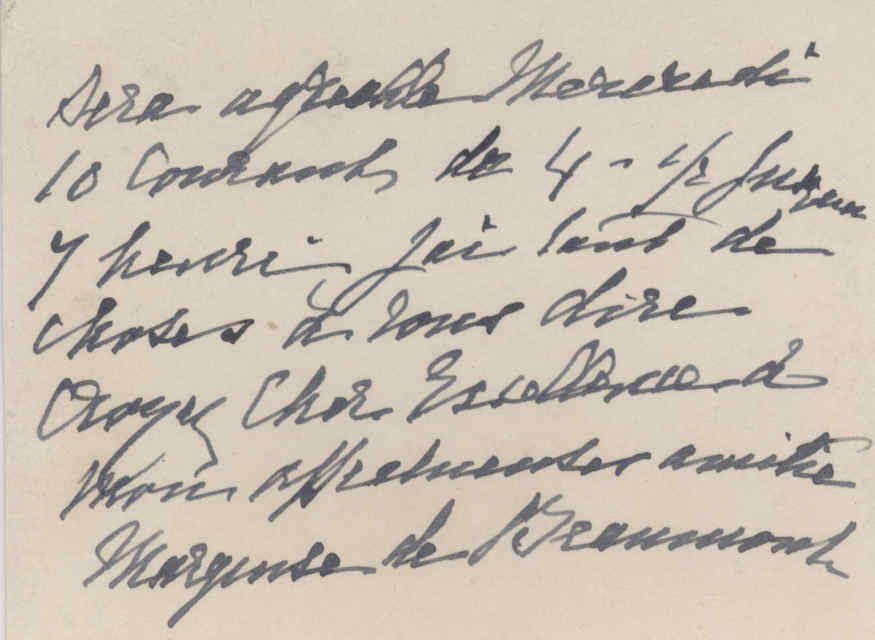 Sera agreable Mercredi
10 Courant de 4 - 1/2 Jusque
7 heure. J'ai tant de
choses à vous dire
Croyez Cher Excellence à
mon affectueuse amitié
Marquise de Beaumont